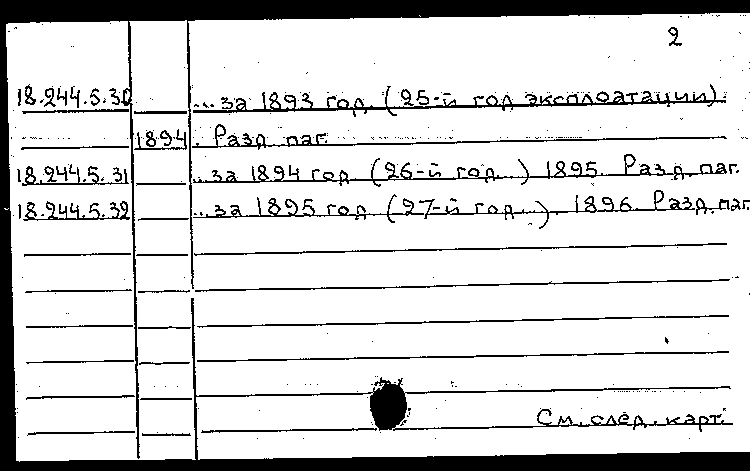 2
18.244.5.30 ... за 1893 год. (25-й год эксплоатации).
1894. Разд. паг.
18.244.5.31 ... за 1894 год (26-й год...) 1895. Разд. паг.
18.244.5.32 ... за 1895 год (27-й год...). 1896. Разд. паг.
См. след. карт.